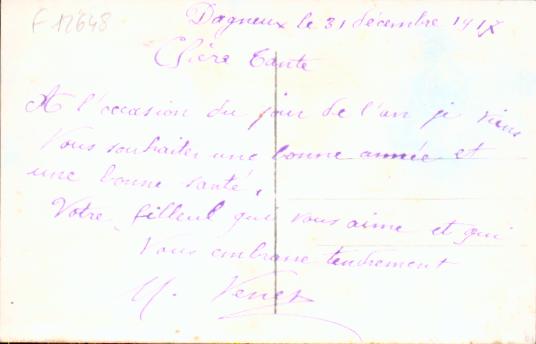 F 12648
Dagneux le 31 décembre 1917
Chère Tante
A l'occasion du jour de l'an je viens
Vous souhaiter une bonne année et
une bonne santé,
Votre filleul qui vous aime et qui
Vous embrasse tendrement
M. Venet